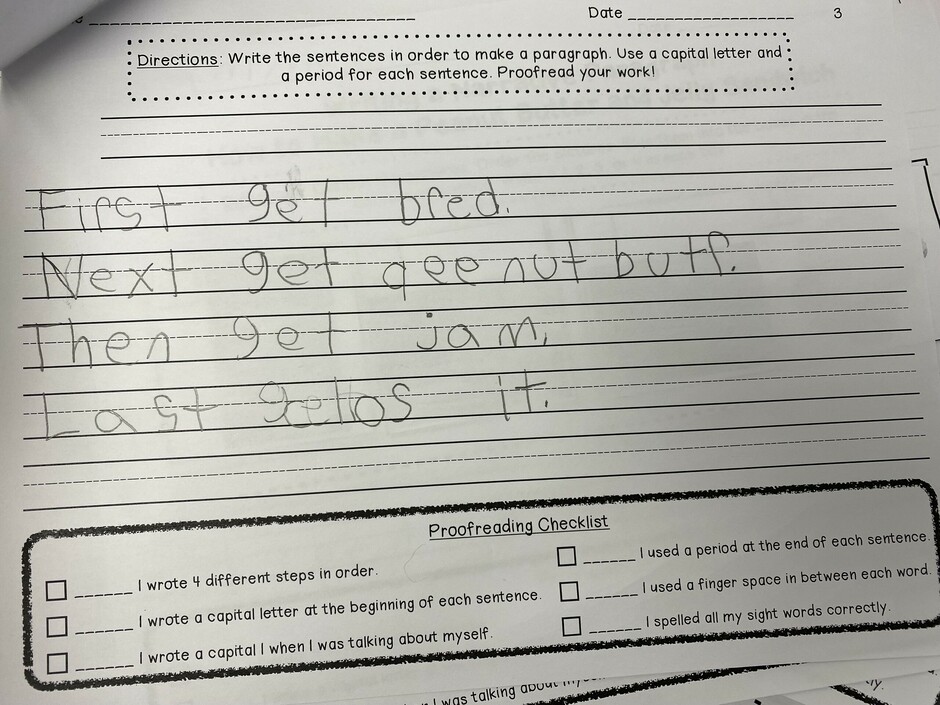 Date 3
Directions: Write the sentences in order to make a paragraph. Use a capital letter and
a period for each sentence. Proofread your work!
First get bred.
Next get qee nut butf.
Then get jam.
Last it.
Proofreading Checklist
I wrote 4 different steps in order.
I used a period at the end of each sentence.
I wrote a capital letter at the beginning of each sentence.
I used a finger space in between each word.
I wrote a capital I when I was talking about myself.
I spelled all my sight words correctly.
I was talking about